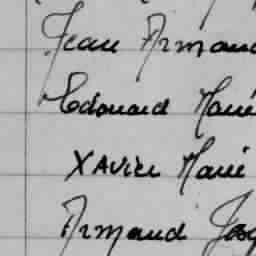 Jean Armand
Edouard Marie
XAVIER Marie
Armand Jos